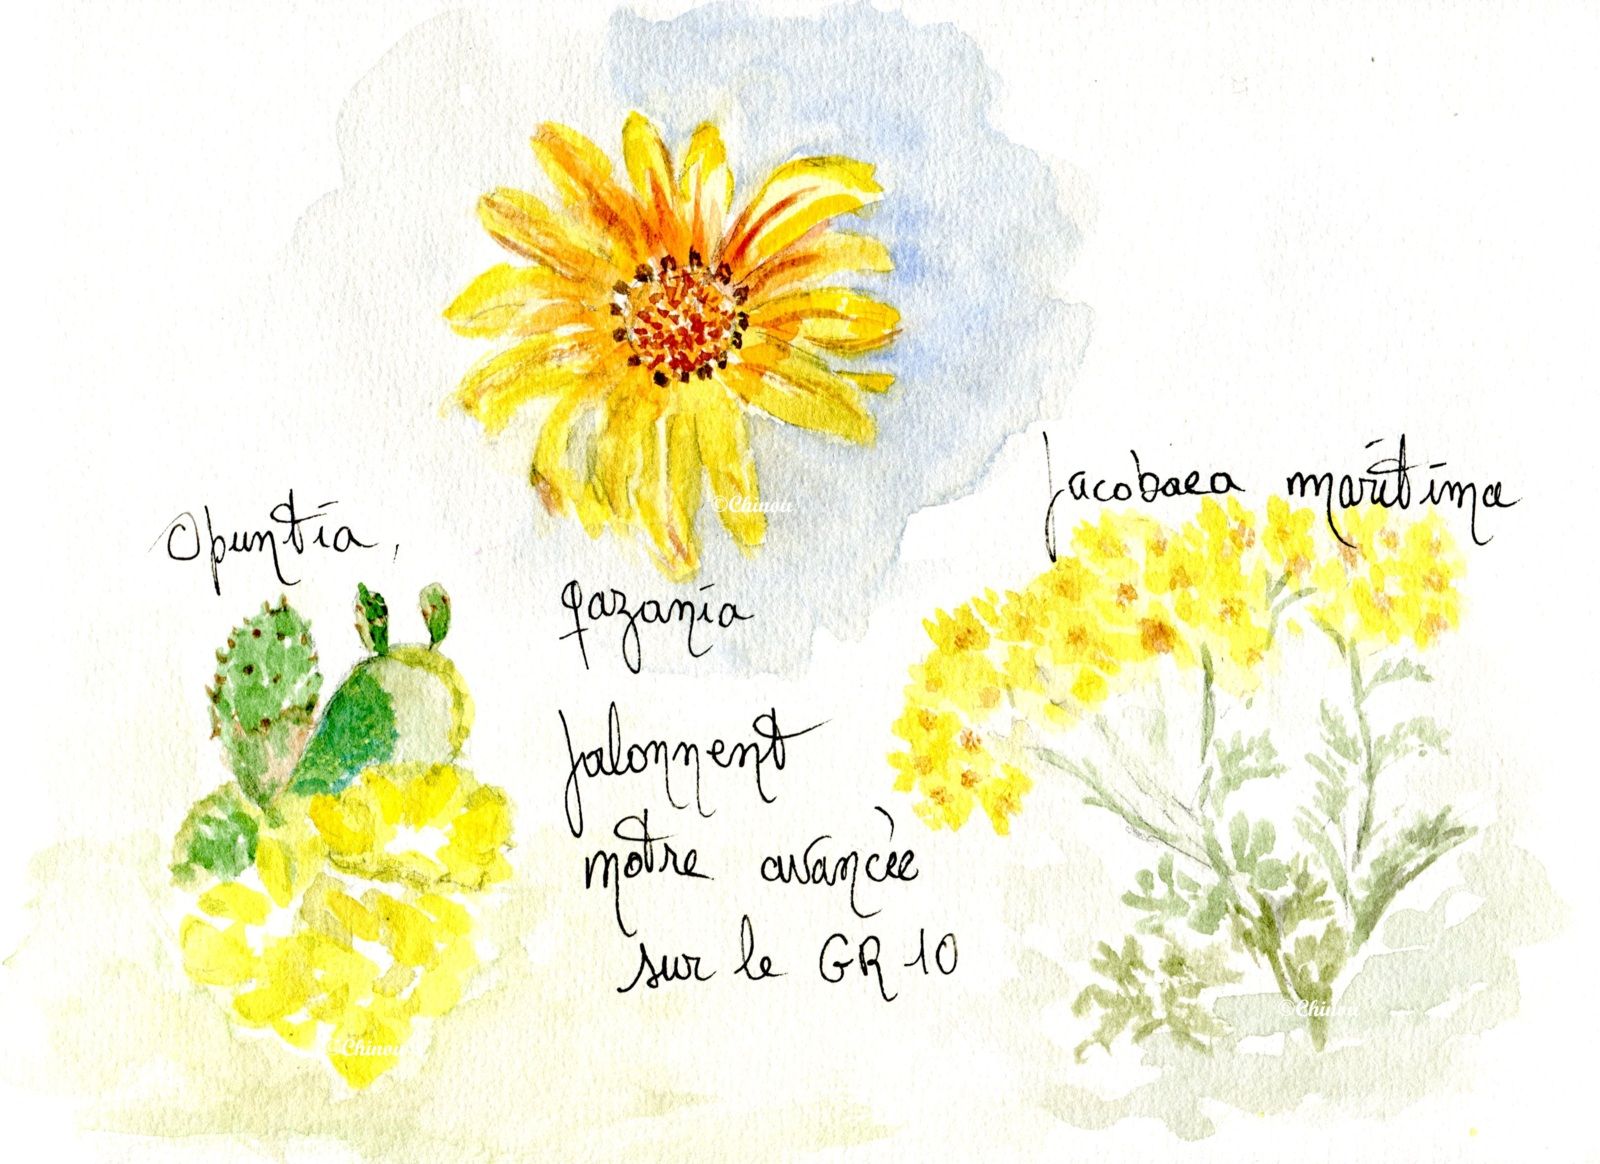 Jacobaea maritima
Opuntia,
©Chinou
gazania
jalonnent
notre avancée
sur le GR 10
©Chinou
©Chinou